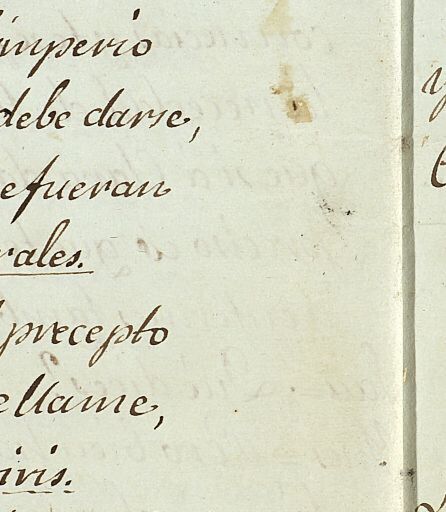 imperio
debe darse,
efueran
rales.
precepto
ellame,
ivis.